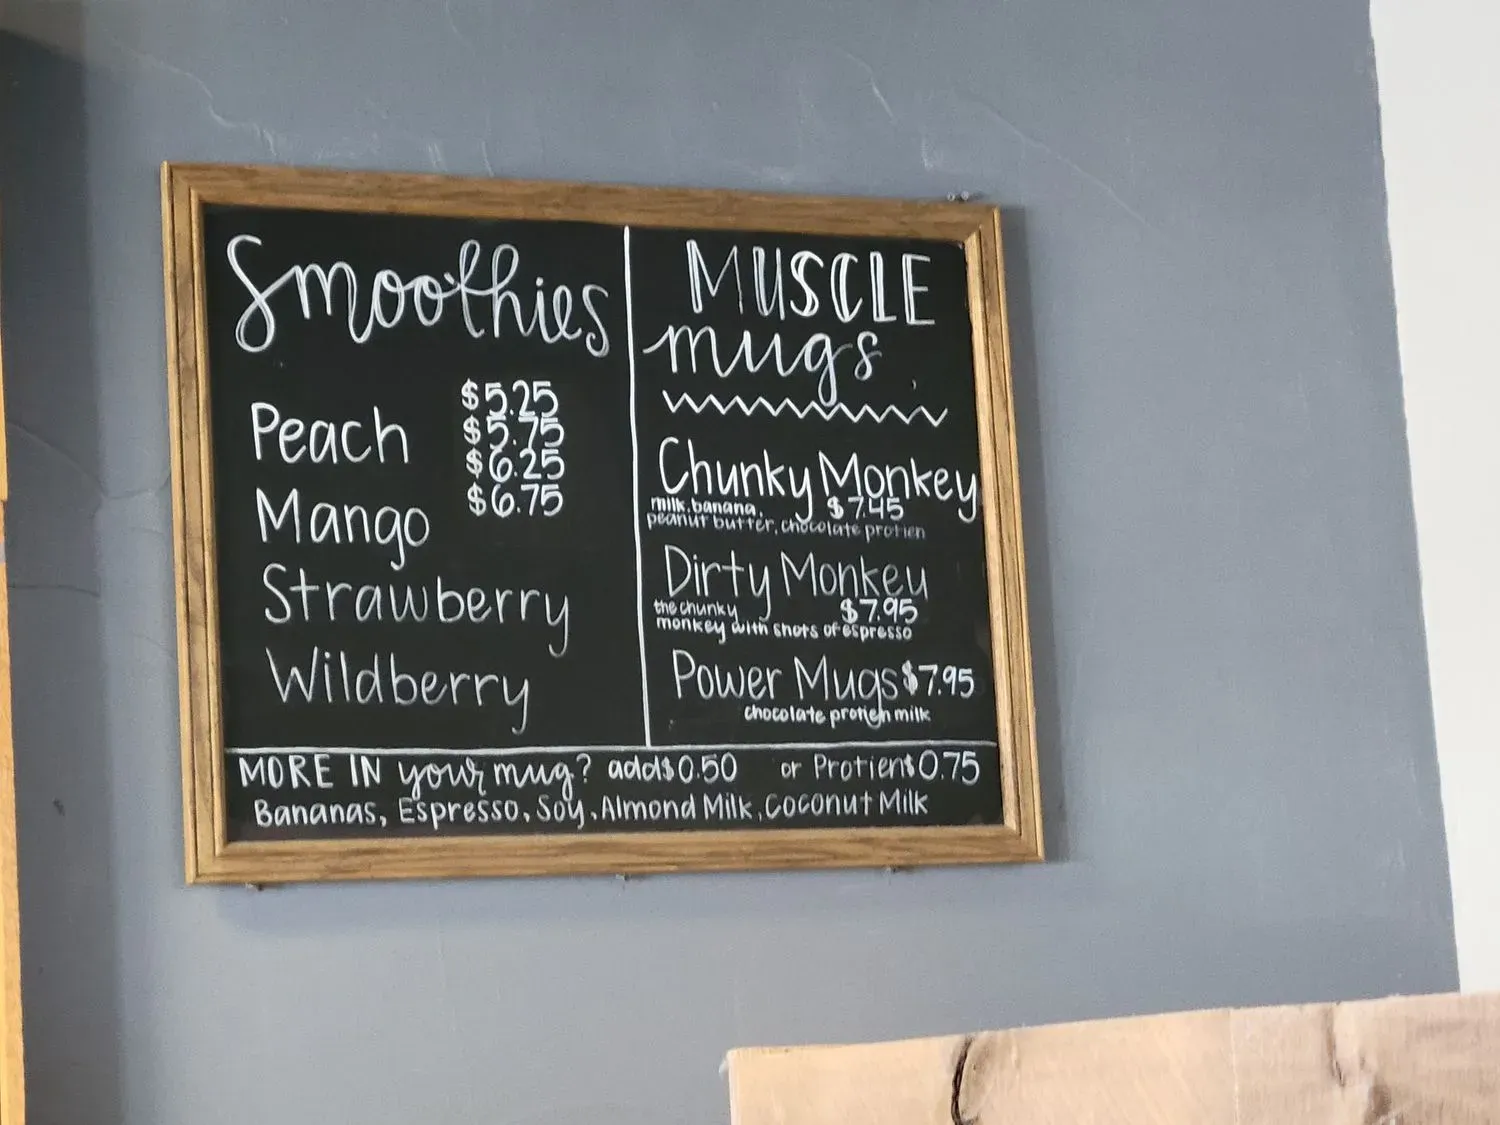 Smoothies
$5.25
Peach
$5.75
$6.25
$6.75
Mango
Strawberry
Wildberry
MUSCLE
mugs
Chunky Monkey
milk, banana, $7.45
peanut butter, chocolate protien
Dirty Monkey
the chunky $7.95
monkey with shots of espresso
Power Mugs $7.95
chocolate protien milk
MORE IN your mug? add $0.50 or Protien $0.75
Bananas, Espresso, Soy, Almond Milk, Coconut Milk